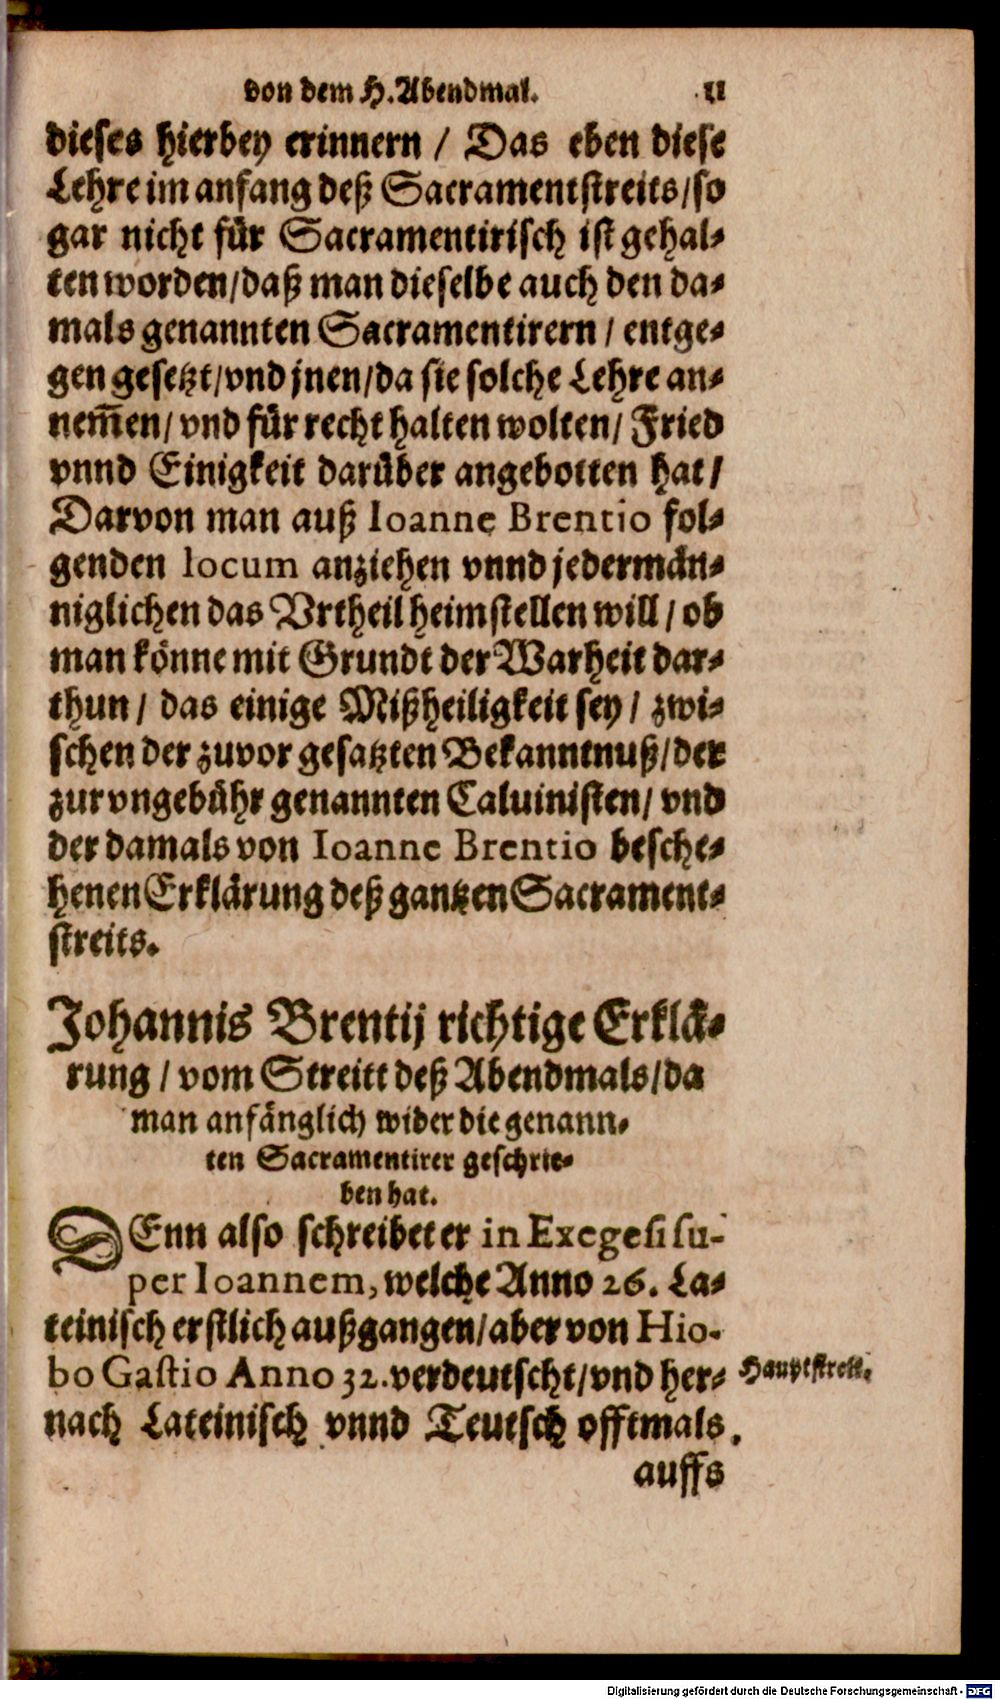 von dem H. Abendmal. 11
dieses hierbey erinnern / Das eben diese
Lehre im anfang deß Sacramentstreits / so
gar nicht für Sacramentirisch ist gehal-
ten worden / daß man dieselbe auch den da-
mals genannten Sacramentirern / entge-
gen gesetzt / vnd jnen / da sie solche Lehre an-
nem̃en / vnd für recht halten wolten / Fried
vnnd Einigkeit darüber angebotten hat /
Darvon man auß Ioanne Brentio fol-
genden locum anziehen vnnd jedermän-
niglichen das Vrtheil heimstellen will / ob
man könne mit Grundt der Warheit dar-
thun / das einige Mißheiligkeit sey / zwi-
schen der zuvor gesatzten Bekanntnuß / der
zur vngebühr genannten Caluinisten / vnd
der damals von Ioanne Brentio besche-
henen Erklärung deß gantzen Sacrament-
streits.
Johannis Brentij richtige Erklä-
rung / vom Streitt deß Abendmals / da
man anfänglich wider die genann-
ten Sacramentirer geschrie-
ben hat.
DEnn also schreibet er in Exegesi su-
per Ioannem, welche Anno 26. La-
teinisch erstlich außgangen / aber von Hio-
bo Gastio Anno 32. verdeutscht / vnd her-
Hauptstreit.
nach Lateinisch vnnd Teutsch offtmals
auffs
Digitalisierung gefördert durch die Deutsche Forschungsgemeinschaft - DFG